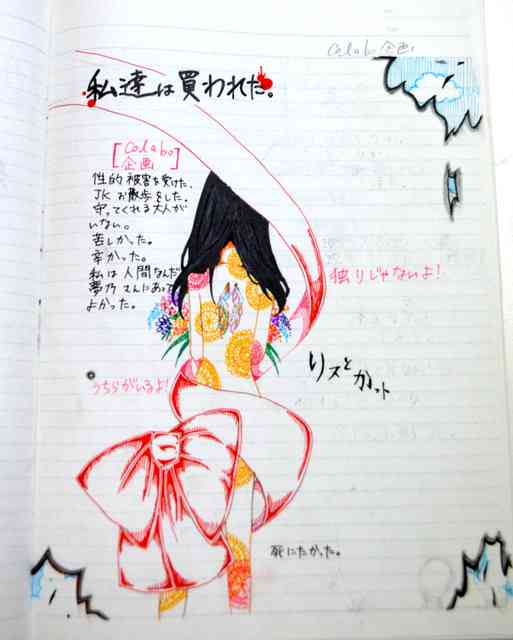 Colabo企画
私達は買われた。
[Colabo
企画]
性的被害を受けた、
JKお散歩をした、
守ってくれる大人が
いない。
苦しかった。
辛かった。
私は人間なんだ
夢乃さんにあって
よかった。
独りじゃないよ!
うちらがいるよ!
リスとカット
死にたかった。